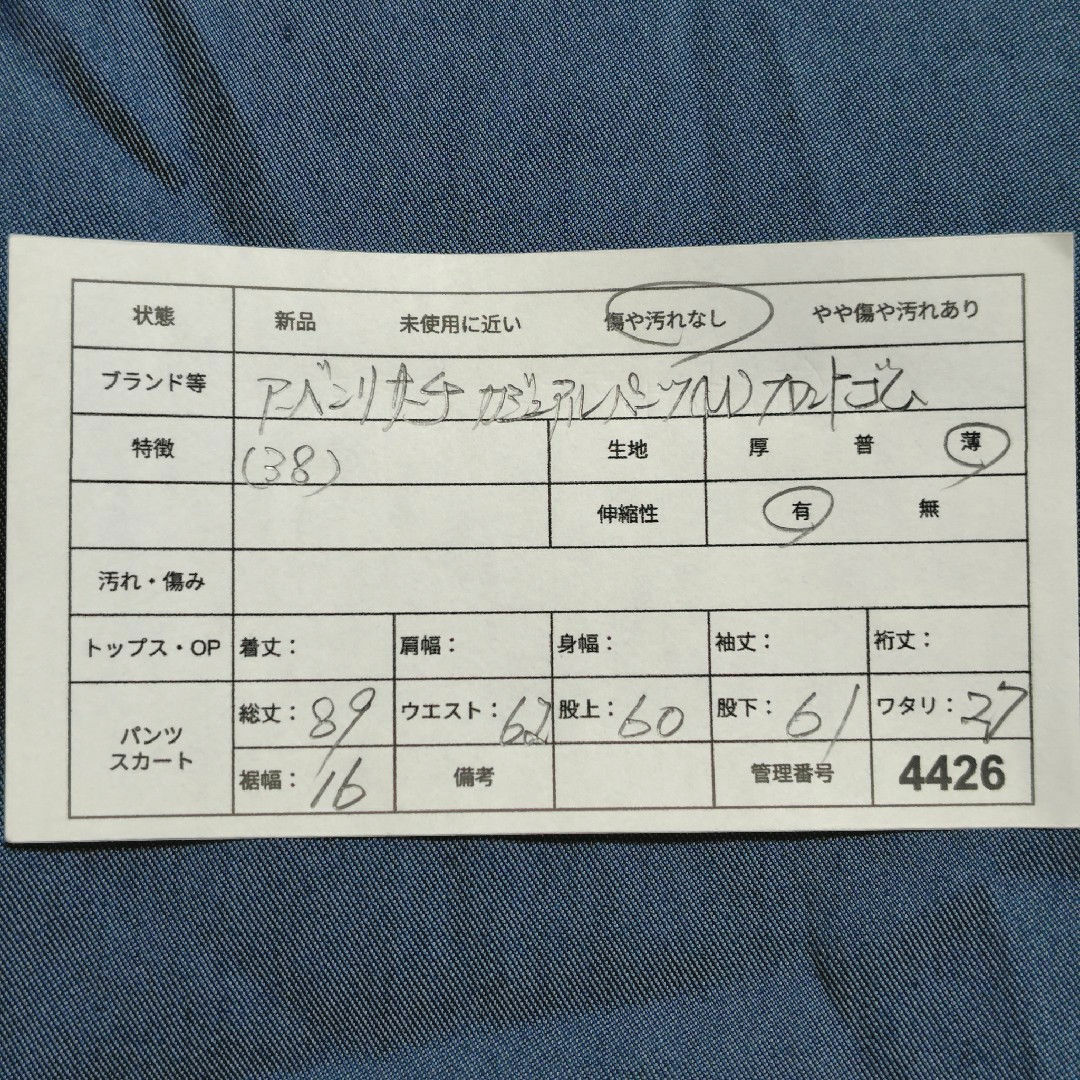 状態 新品 未使用に近い 傷や汚れなし やや傷や汚れあり
ブランド等 アーバンリサーチ カジュアルパンツ(M) フロントゴム
特徴 (38) 生地 厚 普 薄
伸縮性 有 無
汚れ・傷み
トップス・OP 着丈： 肩幅： 身幅： 袖丈： 裄丈：
パンツ スカート 総丈：89 ウエスト：62 股上：60 股下：61 ワタリ：27
裾幅：16 備考 管理番号 4426